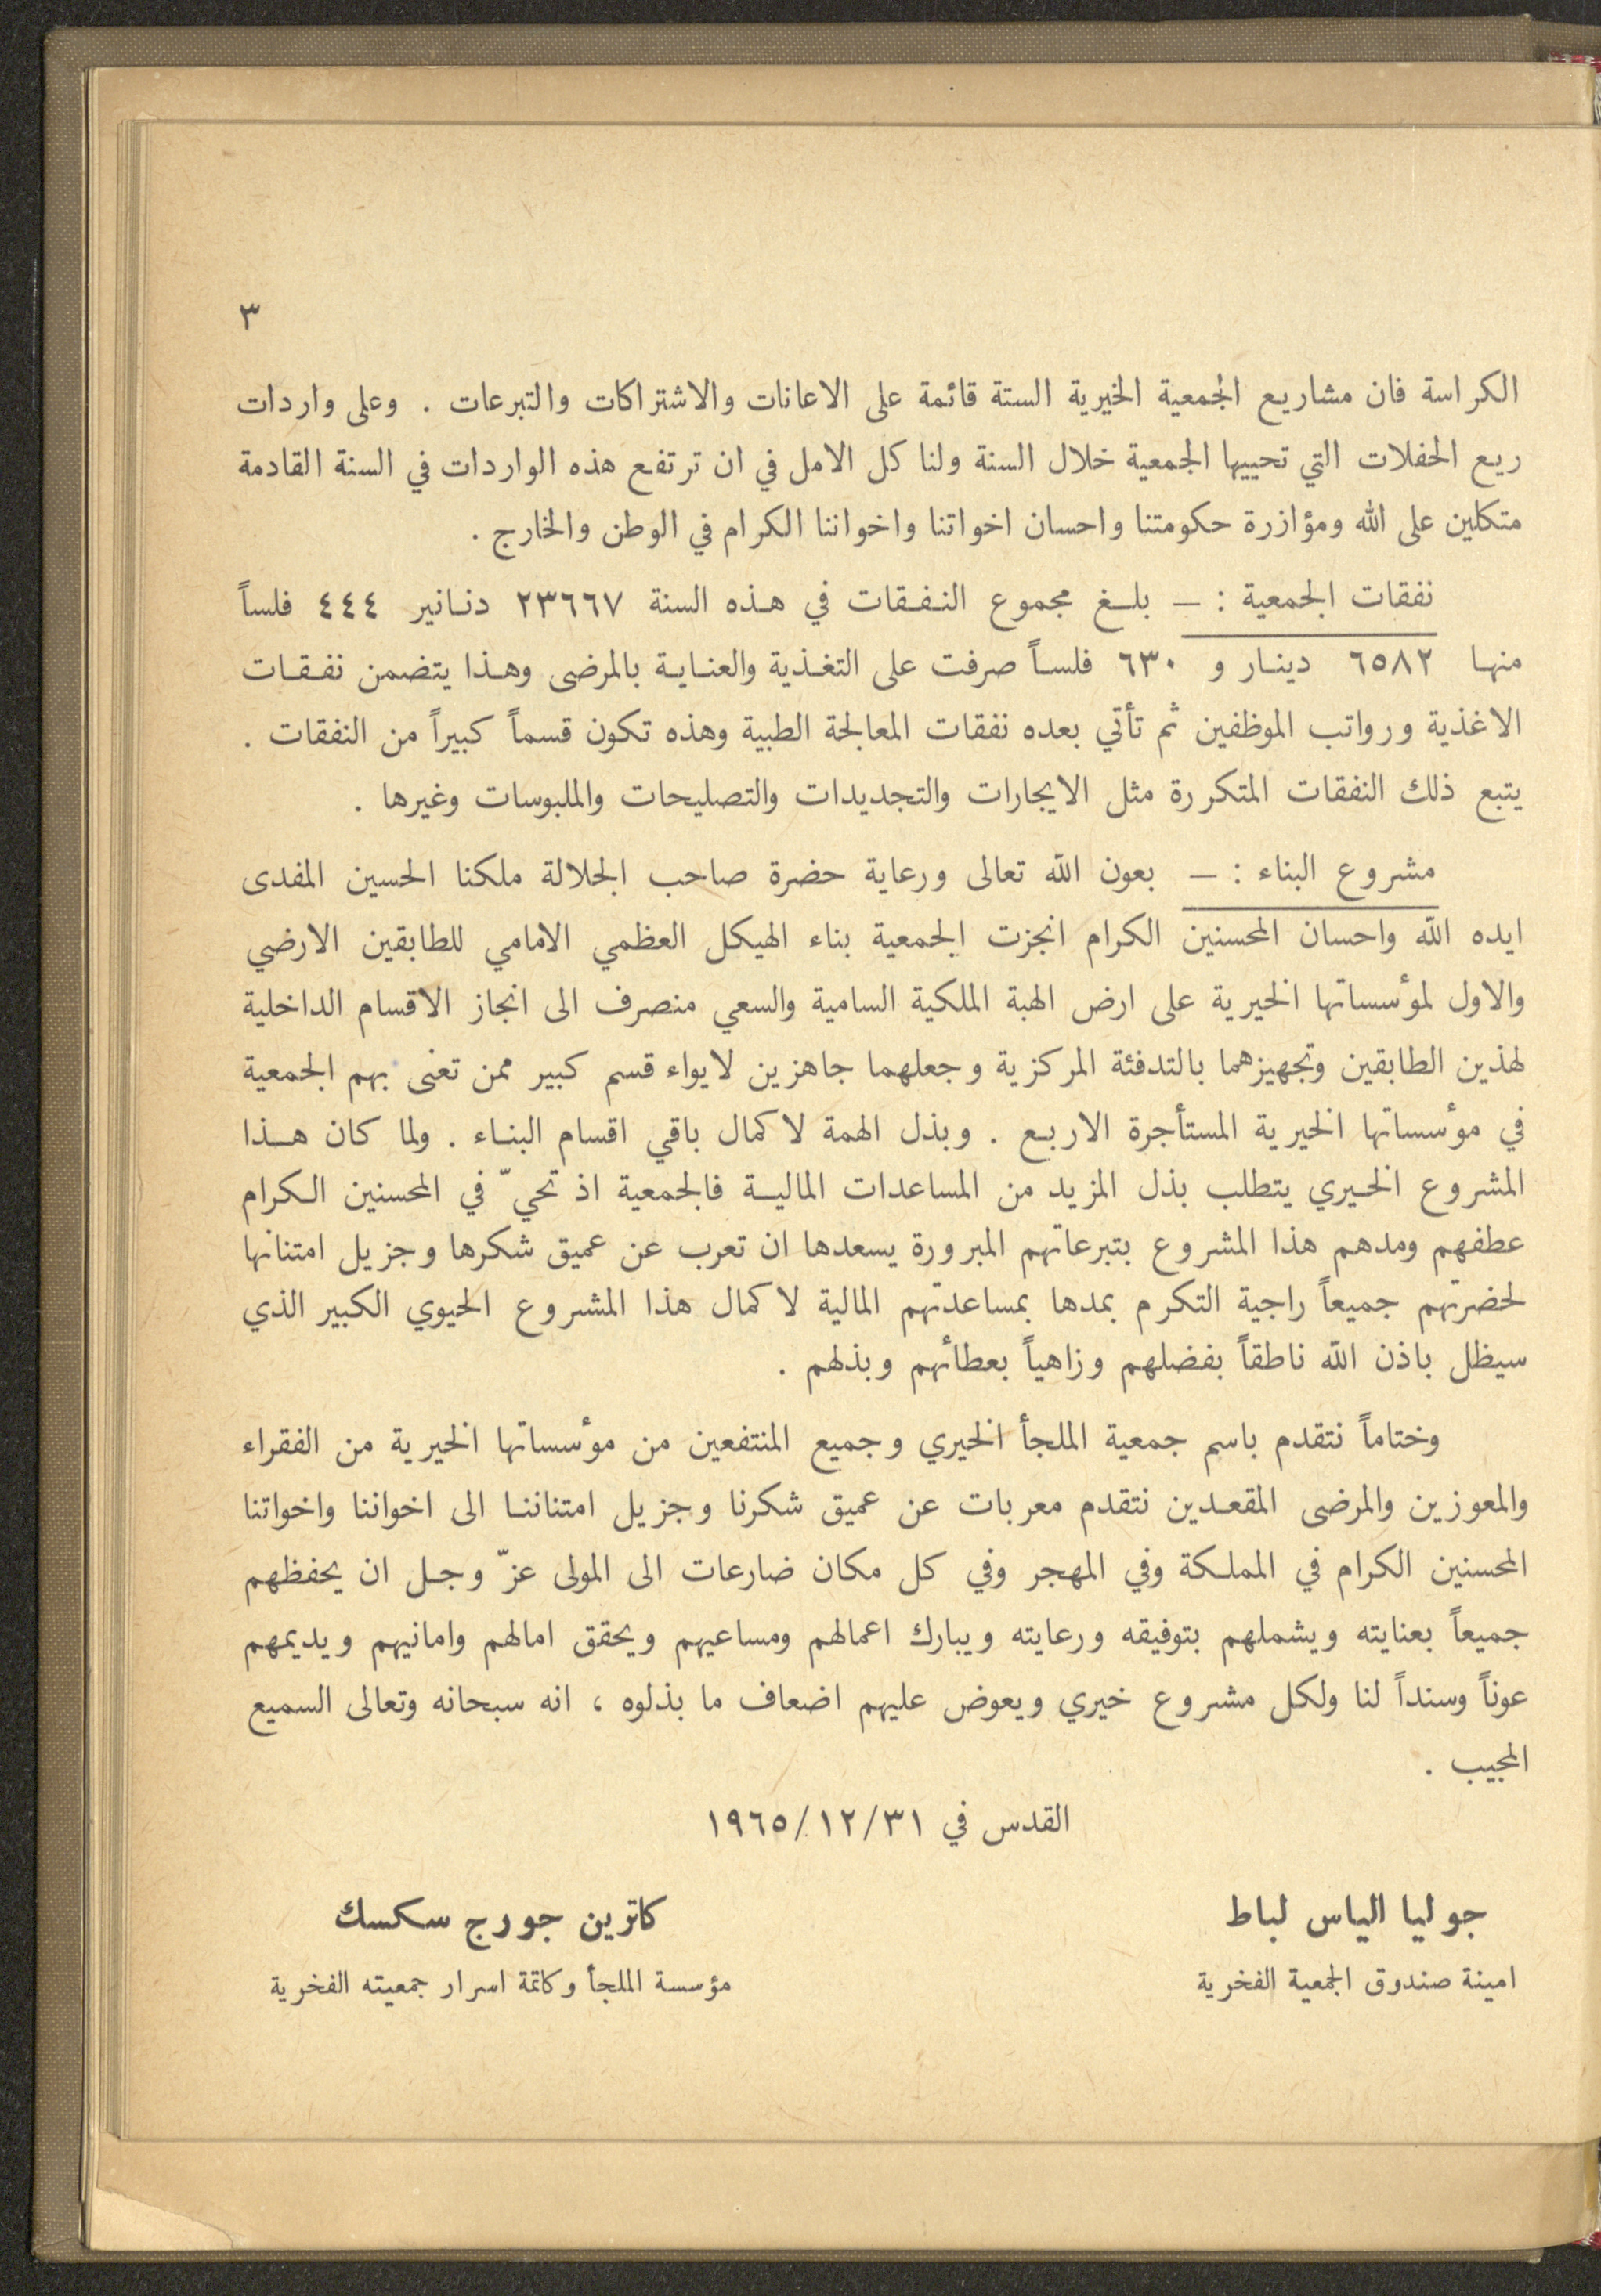 ٣
الكراسة فان مشاريع الجمعية الخيرية الستة قائمة على الاعانات والاشتراكات والتبرعات . وعلى واردات
ريع الحفلات التي تحييها الجمعية خلال السنة ولنا كل الامل في ان ترتفع هذه الواردات في السنة القادمة
متكلين على الله ومؤازرة حكومتنا واحسان اخواتنا واخواننا الكرام في الوطن والخارج .
نفقات الجمعية : – بلغ مجموع النفقات في هذه السنة ٢٣٦٦٧ دنانير ٤٤٤ فلساً
منها ٦٥٨٢ دينار و ٦٣٠ فلساً صرفت على التغذية والعناية بالمرضى وهذا يتضمن نفقات
الاغذية ورواتب الموظفين ثم تأتي بعده نفقات المعالجة الطبية وهذه تكون قسماً كبيراً من النفقات .
يتبع ذلك النفقات المتكررة مثل الايجارات والتجديدات والتصليحات والملبوسات وغيرها .
مشروع البناء : – بعون الله تعالى ورعاية حضرة صاحب الجلالة ملكنا الحسين المفدى
ايده الله واحسان المحسنين الكرام انجزت الجمعية بناء الهيكل العظمي الامامي للطابقين الارضي
والاول لمؤسساتها الخيرية على ارض الهبة الملكية السامية والسعي منصرف الى انجاز الاقسام الداخلية
لهذين الطابقين وتجهيزهما بالتدفئة المركزية وجعلهما جاهزين لايواء قسم كبير ممن تعنى بهم الجمعية
في مؤسساتها الخيرية المستأجرة الاربع . وبذل الهمة لاكمال باقي اقسام البناء . ولما كان هذا
المشروع الخيري يتطلب بذل المزيد من المساعدات المالية فالجمعية اذ تحيّ في المحسنين الكرام
عطفهم ومدهم هذا المشروع بتبرعاتهم المبرورة يسعدها ان تعرب عن عميق شكرها وجزيل امتنانها
لحضرتهم جميعاً راجية التكرم بمدها بمساعدتهم المالية لاكمال هذا المشروع الحيوي الكبير الذي
سيظل باذن الله ناطقاً بفضلهم وزاهياً بعطائهم وبذلهم .
وختاماً نتقدم باسم جمعية الملجأ الخيري وجميع المنتفعين من مؤسساتها الخيرية من الفقراء
والمعوزين والمرضى المقعدين نتقدم معربات عن عميق شكرنا وجزيل امتناننا الى اخواننا واخواتنا
المحسنين الكرام في المملكة وفي المهجر وفي كل مكان ضارعات الى المولى عزّ وجل ان يحفظهم
جميعاً بعنايته ويشملهم بتوفيقه ورعايته ويبارك اعمالهم ومساعيهم ويحقق امالهم وامانيهم ويديمهم
عوناً وسنداً لنا ولكل مشروع خيري ويعوض عليهم اضعاف ما بذلوه ، انه سبحانه وتعالى السميع
المجيب .
القدس في ١٩٦٥/١٢/٣١
جوليا الياس لباط
امينة صندوق الجمعية الفخرية
كاترين جورج سكسك
مؤسسة الملجأ وكاتمة اسرار جمعيته الفخرية